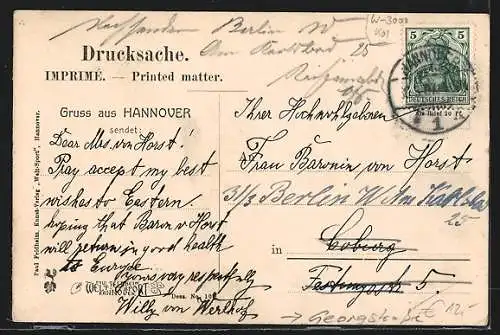 Nachsenden Berlin W
Am Karlsbad 25
W-3000
5 5
DEUTSCHES REICH
HANNOVER
1
Drucksache.
IMPRIMÉ. — Printed matter.
Gruss aus HANNOVER
sendet:
Dear Mrs. von Horst!
Pray accept my best
wishes to Eastern.
hoping that Baron v Horst
will return in good health
to Europe.
Yours very respectfully
Willy von Werlhof
Ihrer Hochwohlgeboren
Frau Baronin von Horst
31/3 Berlin W. Am Karlsbad
25
in Coburg
Festungsstr 5.
Georgstraße
Paul Feldheim, Kunst-Verlag „Welt-Sport", Hannover.
WELT-SPORT
Dess. No.